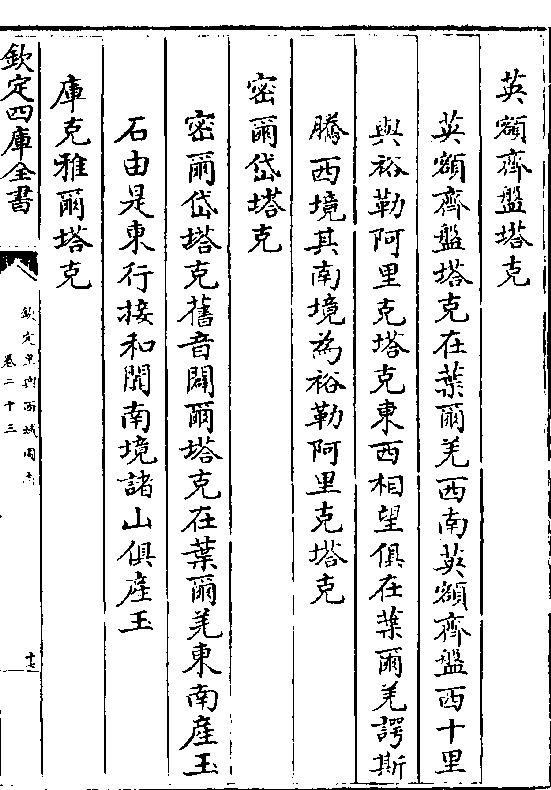 英額齊盤塔克
英額齊盤塔克在葉爾羌西南英額齊盤西十里
與裕勒阿里克塔克東西相望俱在葉爾羌諤斯
騰西境其南境為裕勒阿里克塔克
密爾岱塔克
密爾岱塔克舊音闢爾塔克在葉爾羌東南產玉
石由是東行接和闐南境諸山俱產玉
庫克雅爾塔克
欽定四庫全書
欽定皇輿西域圖志
卷二十三
十七